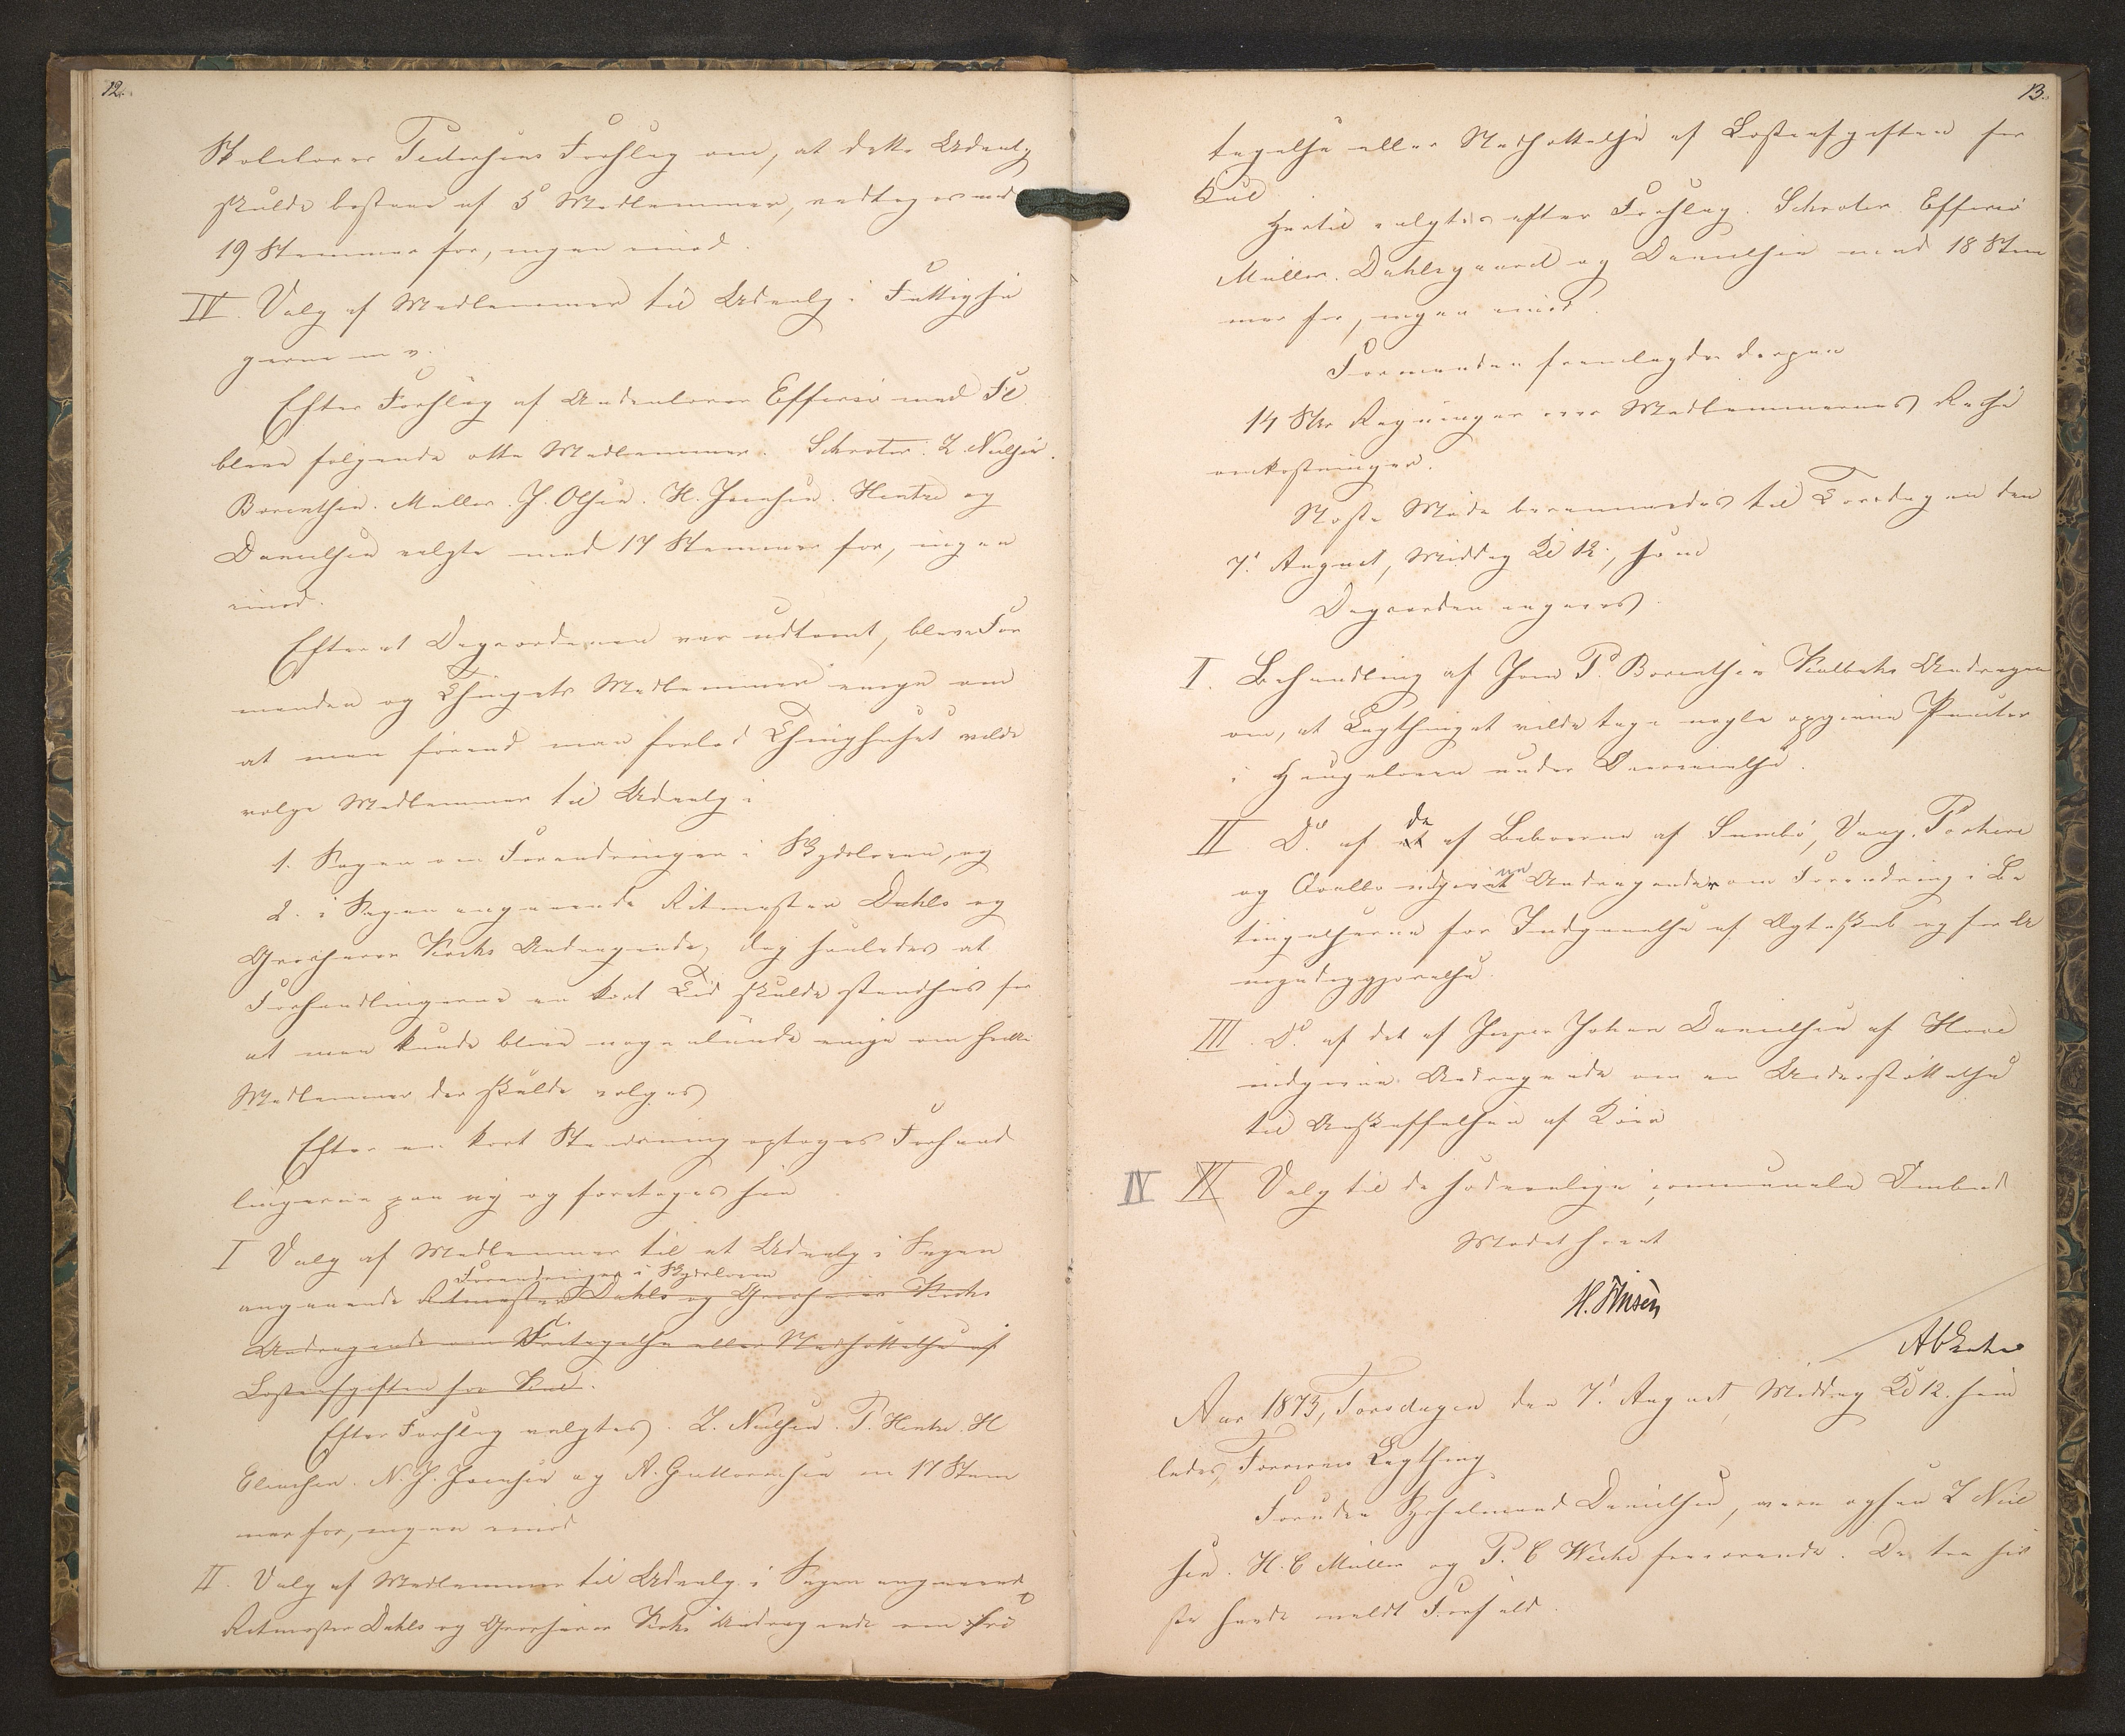 12.
Skolelærer Pedersens Forslag om, at dette Udvalg
skulde bestaae af 5 Medlemmer, vedtoges med
19 Stemmer for, ingen imod.
IV. Valg af Medlemmer til Udvalg i Fattigsa
gerne m v.
Efter Forslag af Underlærer Effersø med Fl
bleve følgende otte Medlemmer. Schrøter. Z. Nielsen.
Berenthsen. Müller. J. Olsen. H. Joensen. Hentze og
Danielsen valgte med 17 Stemmer for, ingen
imod.
Efter at Dagsordenen var udtømt, bleve For
manden og Thingets Medlemmer enige om
at man førend man forlod Thinghuset vilde
vælge Medlemmer til Udvalg i
1. Sagen om Forandringer i Skydsloven, og
2. i Sagen angaaende Ritmester Dahls og
Grosserer Kochs Andragende, dog saaledes at
Forhandlingerne en kort Tid skulde standses for
at man kunde blive nogenlunde enige om hvilke
Medlemmer der skulde vælges
Efter en kort Standsning optoges Forhand
lingerne paa ny og foretoges saa
I Valg af Medlemmer til et Udvalg i Sagen
Forandringer i Skydsloven
angaaende Ritmester Dahls og Grosserer Kochs
Andragende om Fritagelse eller Nedsættelse af
Lasteafgiften for Kul.
Efter Forslag valgtes. Z. Nielsen. P. Hentze. H
N. J. Joensen og A. Guttormsen m 17 Stem
mer for, ingen imod
II. Valg af Medlemmer til Udvalg i Sagen angaaende
Ritmester Dahls og Grosserer Kochs Andragende om Fri
13.
tagelse eller Nedsættelse af Lasteafgiften for
Kul
Hertil valgtes efter Forslag. Schrøter Effersø
Müller. Dahlsgaard og Danielsen med 18 Stem
mer for, ingen imod.
Formanden fremlagde derpaa
14 Stk Regninger over Medlemmernes Reise
omkostninger.
Næste Møde berammedes til Torsdagen den
7. August, Middag Kl 12, som
Dagsorden angaves.
I. Behandling af Joen P. Berenthsen Kalbaks Andragen
om, at Lagthinget vilde tage nogle opgivne Puncter
i Haugeloven under Overveielse.
II Do. af de af Beboerne af Sumbø, Vaag, Porkere
og Qvalbø indgivne Andragender om Forandring i Be
tingelserne for Indgaaelse af Ægteskab og for U
myndiggjørelse.
III. Do. af det af Jesper Johan Danielsen af Hove
indgivne Andragende om en Understøttelse
til Anskaffelsen af Køer
IV VI Valg til de sædvanlige communale Ombud
Mødet hævet
H. Finsen
Aar 1873, Torsdagen den 7. August Middag Kl 12. sam
ledes Færøernes Lagthing
Foruden Sysselmand Danielsen, vare ogsaa Z Niel
sen. H. C Müller og P. C Weihe fraværende. De tre sid
ste havde meldt Forfald.